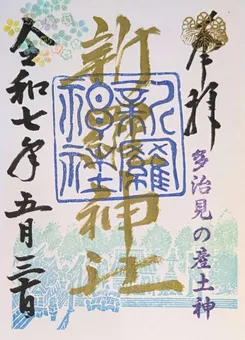 奉拝
多治見の産土神
新羅神社
新羅神社
令和七年五月